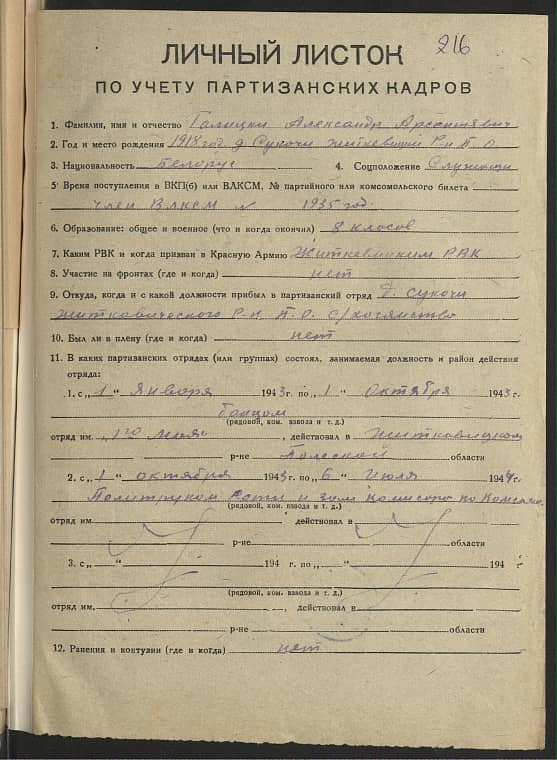 216
ЛИЧНЫЙ ЛИСТОК
ПО УЧЕТУ ПАРТИЗАНСКИХ КАДРОВ
1. Фамилия, имя и отчество Галицки Александр Арсентявич
2. Год и место рождения 1918 год д Сукочи Житкевицки Р-н П. О
3. Национальность Белорус 4. Соцположение Служащи
5. Время поступления в ВКП(б) или ВЛКСМ, № партийного или комсомольского билета
член ВЛКСМ с 1935 год.
6. Образование: общее и военное (что и когда окончил) 8 класов
7. Каким РВК и когда призван в Красную Армию Житкевицким РВК
8. Участие на фронтах (где и когда) нет
9. Откуда, когда и с какой должности прибыл в партизанский отряд Д. Сукочи
Житковического Р-н. П. О. С/хозяйство
10. Был ли в плену (где и когда) нет
11. В каких партизанских отрядах (или группах) состоял, занимаемая должность и район действия
отряда:
1. с „1“ Января 1943 г. по „1“ Октября 1943 г.
бойцом
(рядовой, ком. взвода и т. д.)
отряд им. 1го Мая, действовал в Житковицком
р-не Полеской области
2. с „1“ октября 1943 г. по „6“ Июля 1944 г.
Политруком Роты и зам Комисара по Комсомо.
(рядовой, ком. взвода и т. д.)
отряд им. действовал в
р-не области
3. с „ “ 194 г. по „ “ 194 г.
(рядовой, ком. взвода и т. д.)
отряд им. , действовал в
р-не области
12. Ранения и контузии (где и когда) нет